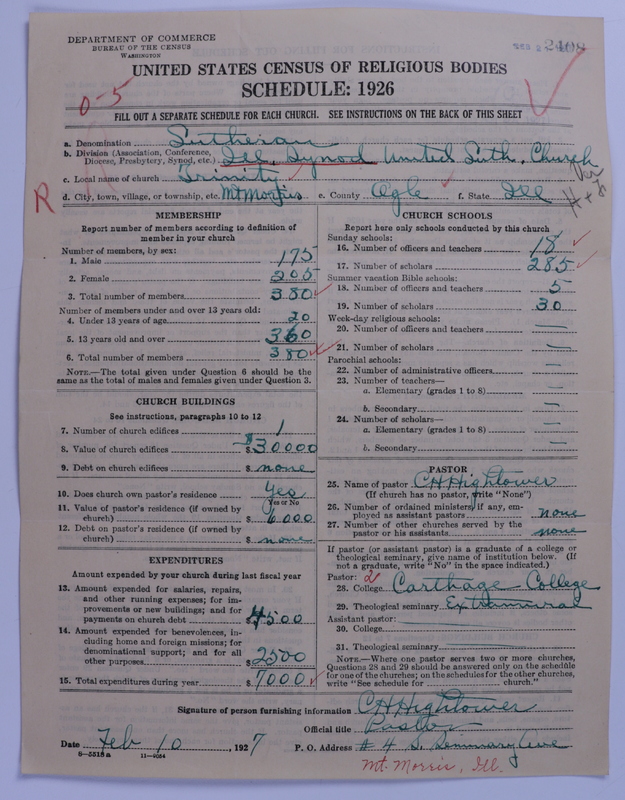 DEPARTMENT OF COMMERCE
BUREAU OF THE CENSUS
WASHINGTON
UNITED STATES CENSUS OF RELIGIOUS BODIES
SCHEDULE: 1926
0-5
FILL OUT A SEPARATE SCHEDULE FOR EACH CHURCH. SEE INSTRUCTIONS ON THE BACK OF THIS SHEET
a. Denomination Lutheran
b. Division (Association, Conference, Diocese, Presbytery, Synod, etc.) Ill. Synod United Luth. Church
c. Local name of church Trinity
R
d. City, town, village, or township, etc. Mt Morris e. County Ogle f. State Ill
MEMBERSHIP
Report number of members according to definition of
member in your church
Number of members, by sex:
1. Male 175
2. Female 205
3. Total number of members 380
Number of members under and over 13 years old:
4. Under 13 years of age 20
5. 13 years old and over 360
6. Total number of members 380
NOTE.—The total given under Question 6 should be the
same as the total of males and females given under Question 3.
CHURCH BUILDINGS
See instructions, paragraphs 10 to 12
7. Number of church edifices 1
8. Value of church edifices $30000
9. Debt on church edifices $ none
10. Does church own pastor's residence Yes
Yes or No
11. Value of pastor's residence (if owned by
church) $ 6000
12. Debt on pastor's residence (if owned by
church) $ none
EXPENDITURES
Amount expended by your church during last fiscal year
13. Amount expended for salaries, repairs,
and other running expenses; for im-
provements or new buildings; and for
payments on church debt $4500
14. Amount expended for benevolences, in-
cluding home and foreign missions; for
denominational support; and for all
other purposes $2500
15. Total expenditures during year $7000
CHURCH SCHOOLS
Report here only schools conducted by this church
Sunday schools:
16. Number of officers and teachers 18
17. Number of scholars 285
Summer vacation Bible schools:
18. Number of officers and teachers 5
19. Number of scholars 30
Week-day religious schools:
20. Number of officers and teachers —
21. Number of scholars —
Parochial schools:
22. Number of administrative officers —
23. Number of teachers—
a. Elementary (grades 1 to 8) —
b. Secondary —
24. Number of scholars—
a. Elementary (grades 1 to 8) —
b. Secondary —
PASTOR
25. Name of pastor C H Hightower
(If church has no pastor, write "None")
26. Number of ordained ministers, if any, em-
ployed as assistant pastors none
27. Number of other churches served by the
pastor or his assistants none
If pastor (or assistant pastor) is a graduate of a college or
theological seminary, give name of institution below. (If
not a graduate, write "No" in the space indicated.)
Pastor: 2
28. College Carthage College
29. Theological seminary Extramural
Assistant pastor:
30. College
31. Theological seminary
NOTE.—Where one pastor serves two or more churches,
Questions 28 and 29 should be answered only on the schedule
for one of the churches; on the schedules for the other churches,
write "See schedule for church."
Signature of person furnishing information C H Hightower
Official title Pastor
Date Feb 10, 1927 P. O. Address # 4 S. Seminary Ave
8-5518a 11-9054
Mt. Morris, Ill.